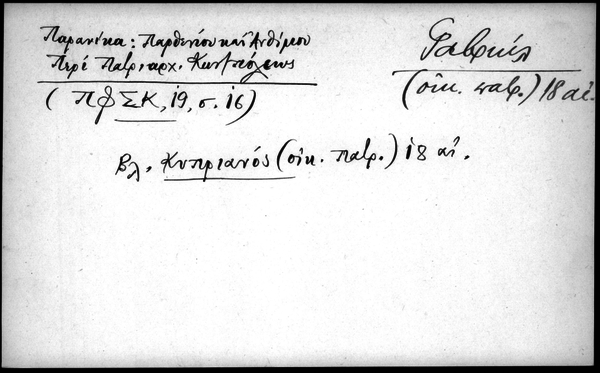 Παρανίκα: Παρθενίου και Ανθίμου
Περί Πατριαρχ. Κωνπόλεως
(ΠΦΣΚ, 19, σ. 16)
Γαβριήλ
(οἰκ. πατρ.) 18 αἰ.
Βλ. Κυπριανός (οἰκ. πατρ.) 18 αἰ.